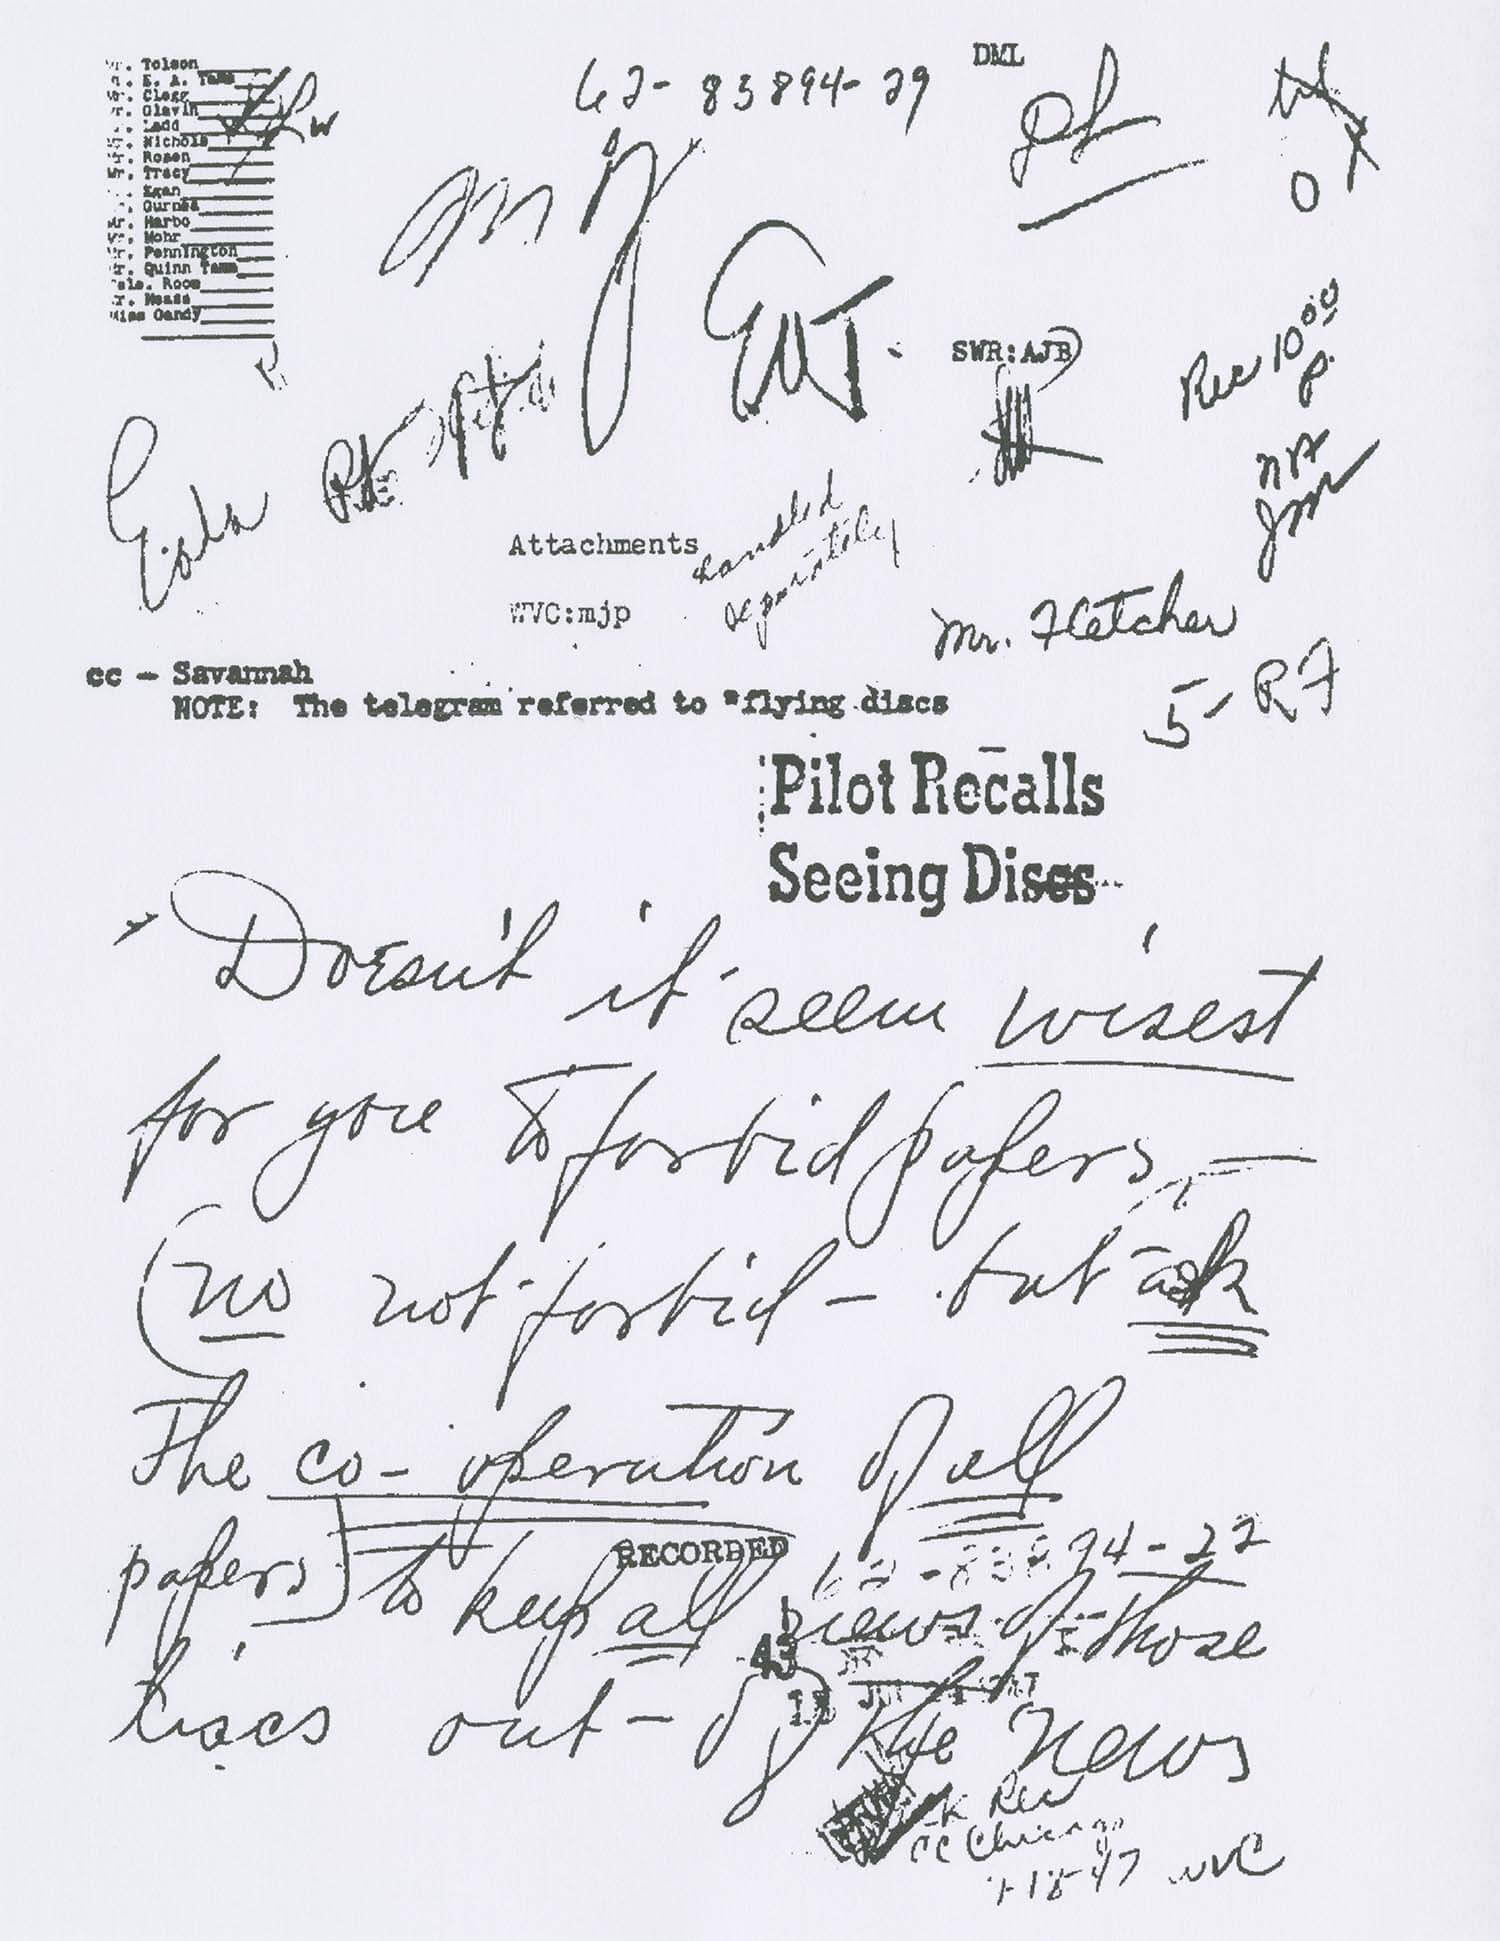 Mr. Tolson
E. A. Tamm
Mr. Clegg
Mr. Glavin
Ladd
Mr. Nichols
Mr. Rosen
Mr. Tracy
Egan
Gurnea
Mr. Harbo
Mr. Mohr
Mr. Pennington
Mr. Quinn Tamm
Tele. Room
Mr. Nease
Miss Gandy
62-83894-29
DML
EWT.
SWR:AJB
Rec 10 00
P.
Attachments
handled
separately
WVC:mjp
Mr. Fletcher
5-RF
cc - Savannah
NOTE: The telegram referred to "flying discs
Pilot Recalls
Seeing Discs
Doesn't it seem wisest
for you to forbid papers, —
(no not forbid — but ask
The co-operation of all
papers) to keep all news of those
discs out-of the news
RECORDED
62-83894-22
43
CC Chicago
7-18-47 WVC